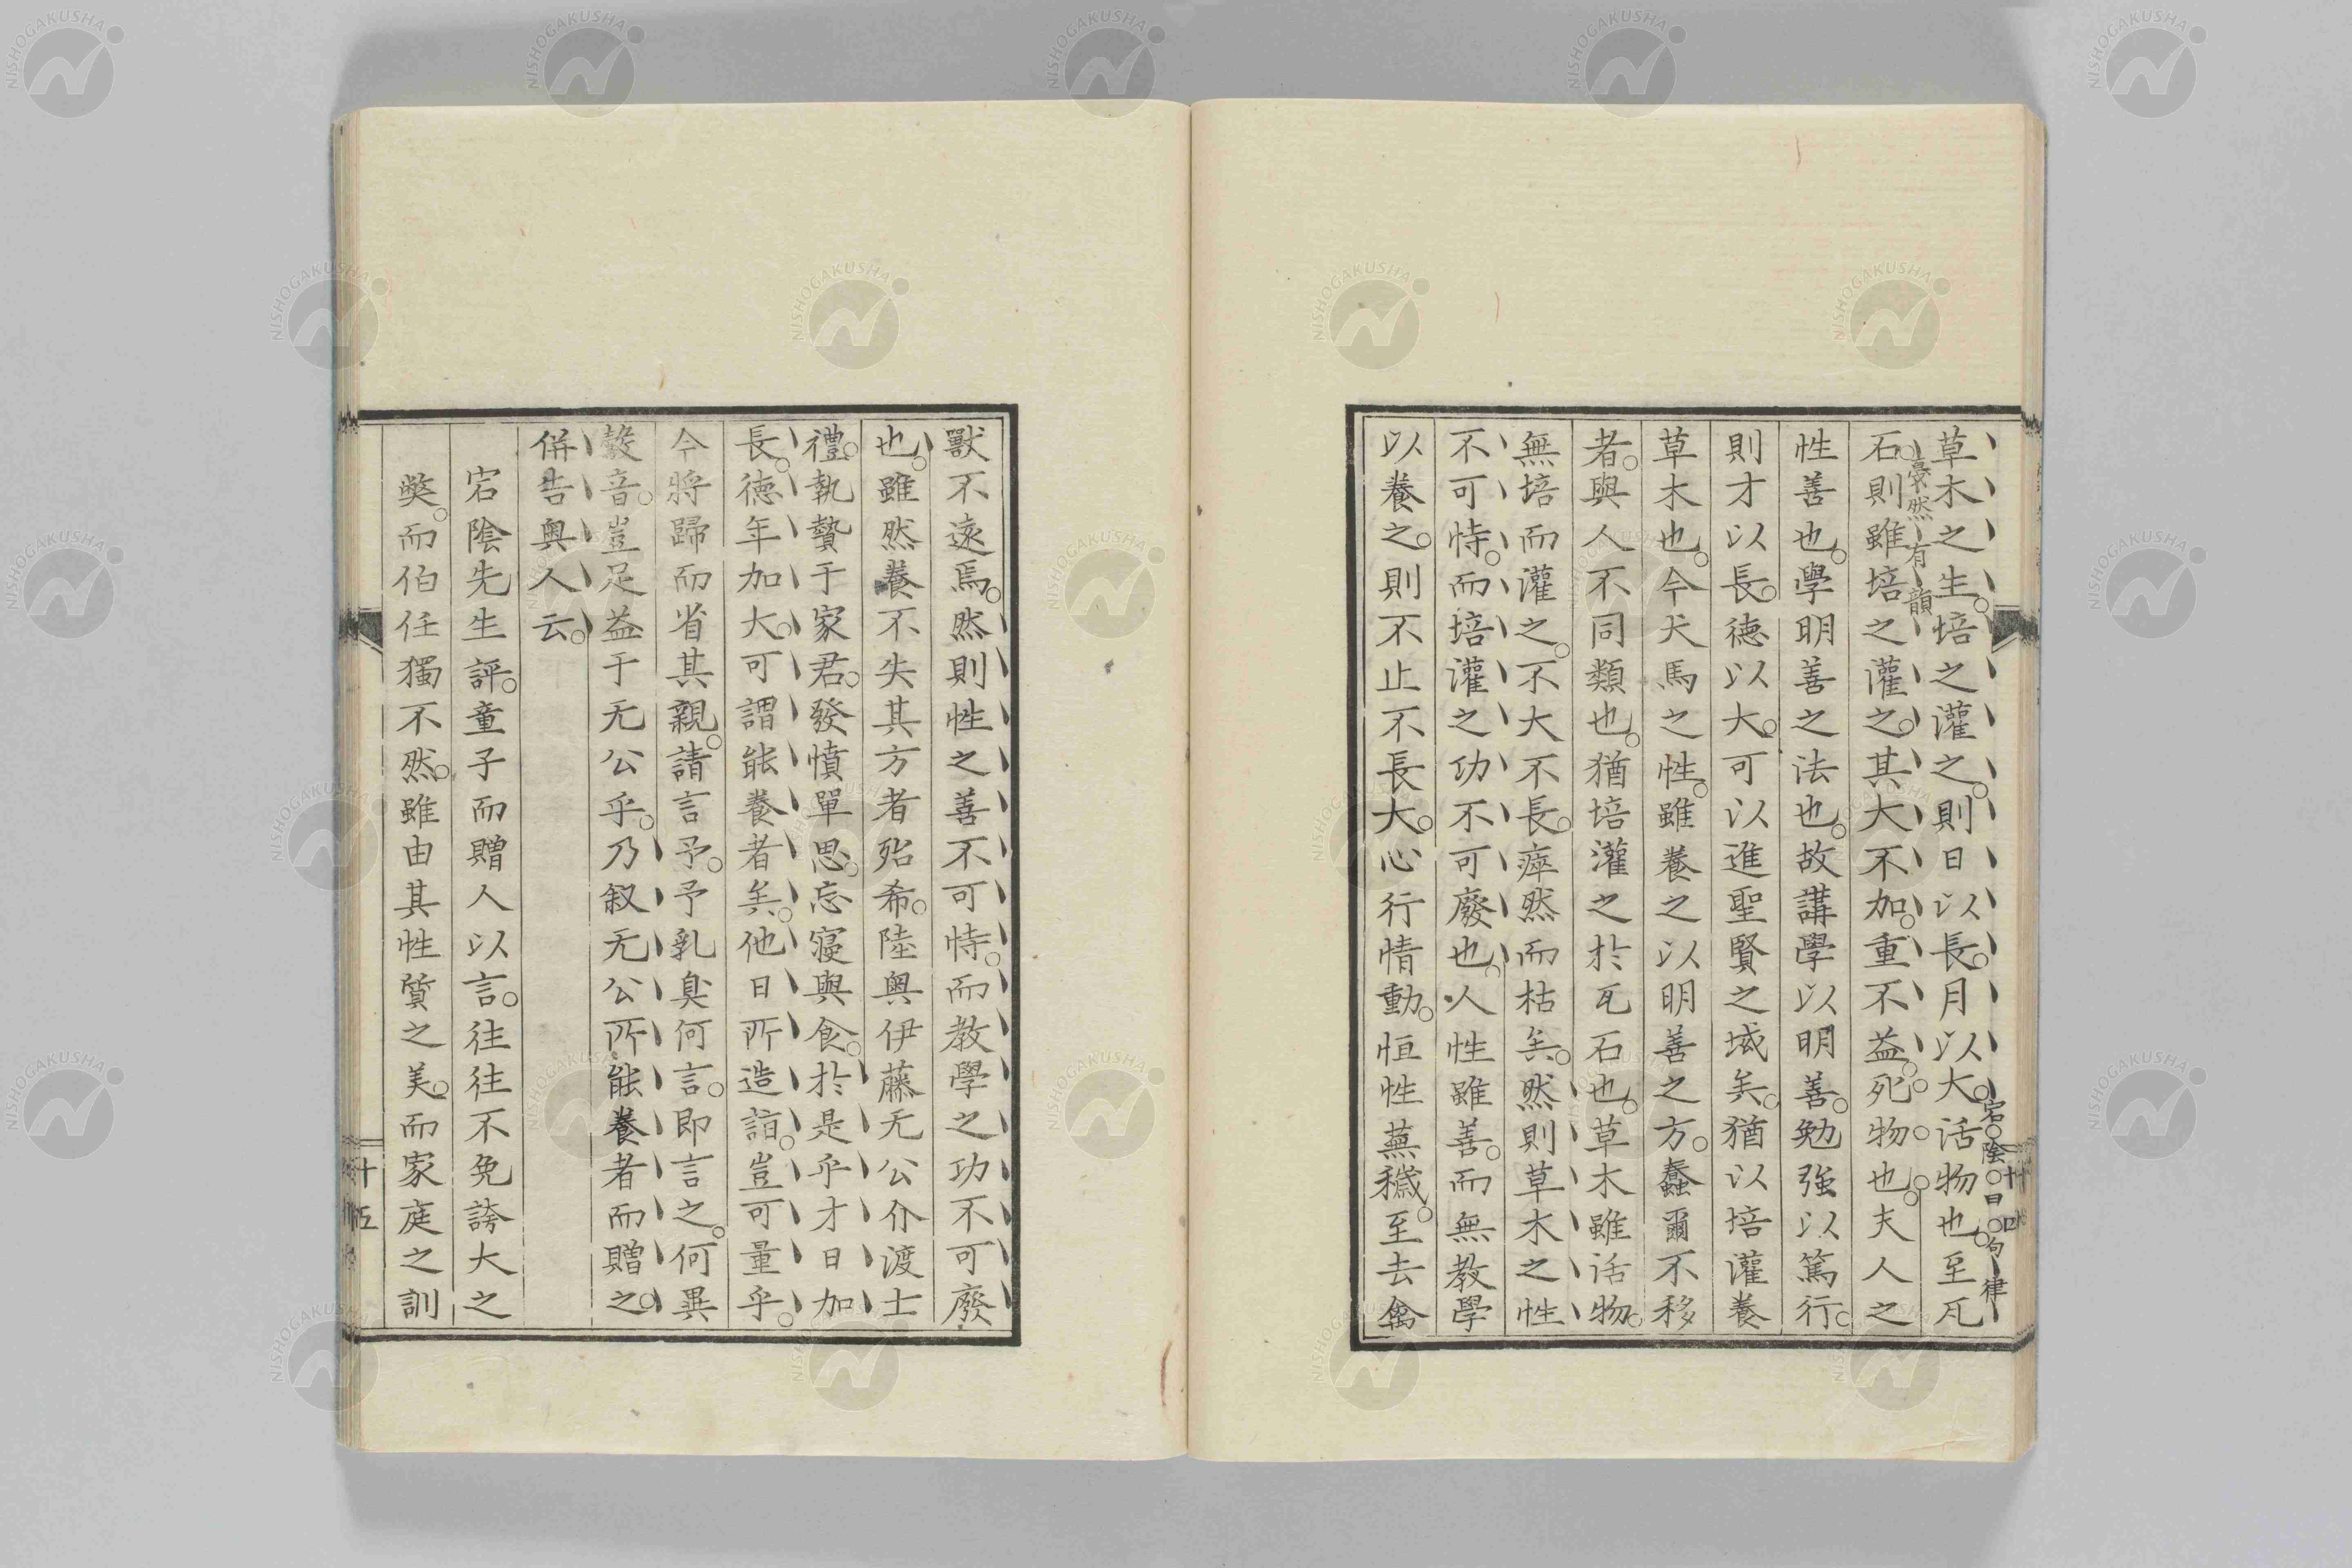 草木之生培之灌之則日以長月以大活物也至瓦
宕陰曰句律
戞然有韻
石則雖培之灌之其大不加重不益死物也夫人之
性善也學明善之法也故講學以明善勉強以篤行
則才以長徳以大可以進聖賢之域矣猶以培灌養
草木也今犬馬之性雖養之以明善之方蠢爾不移
者與人不同類也猶培灌之於瓦石也草木雖活物
無培而灌之不大不長瘁然而枯矣然則草木之性
不可恃而培灌之功不可廢也人性雖善而無教學
以養之則不止不長大心行情動恒性蕪穢至去禽
十四
獸不遠焉然則性之善不可恃而教學之功不可廢
也雖然養不失其方者殆希陸奥伊藤无公介渡士
禮執贄于家君發憤單思忘寢與食於是乎才日加
長徳年加大可謂能養者矣他日所造詣豈可量乎
今將歸而省其親請言予予乳臭何言即言之何異
鷇音豈足益于无公乎乃叙无公所能養者而贈之
併告奥人云
宕陰先生評童子而贈人以言往往不免誇大之
弊而伯任獨不然雖由其性質之美而家庭之訓
十五
NISHOGAKUSHA